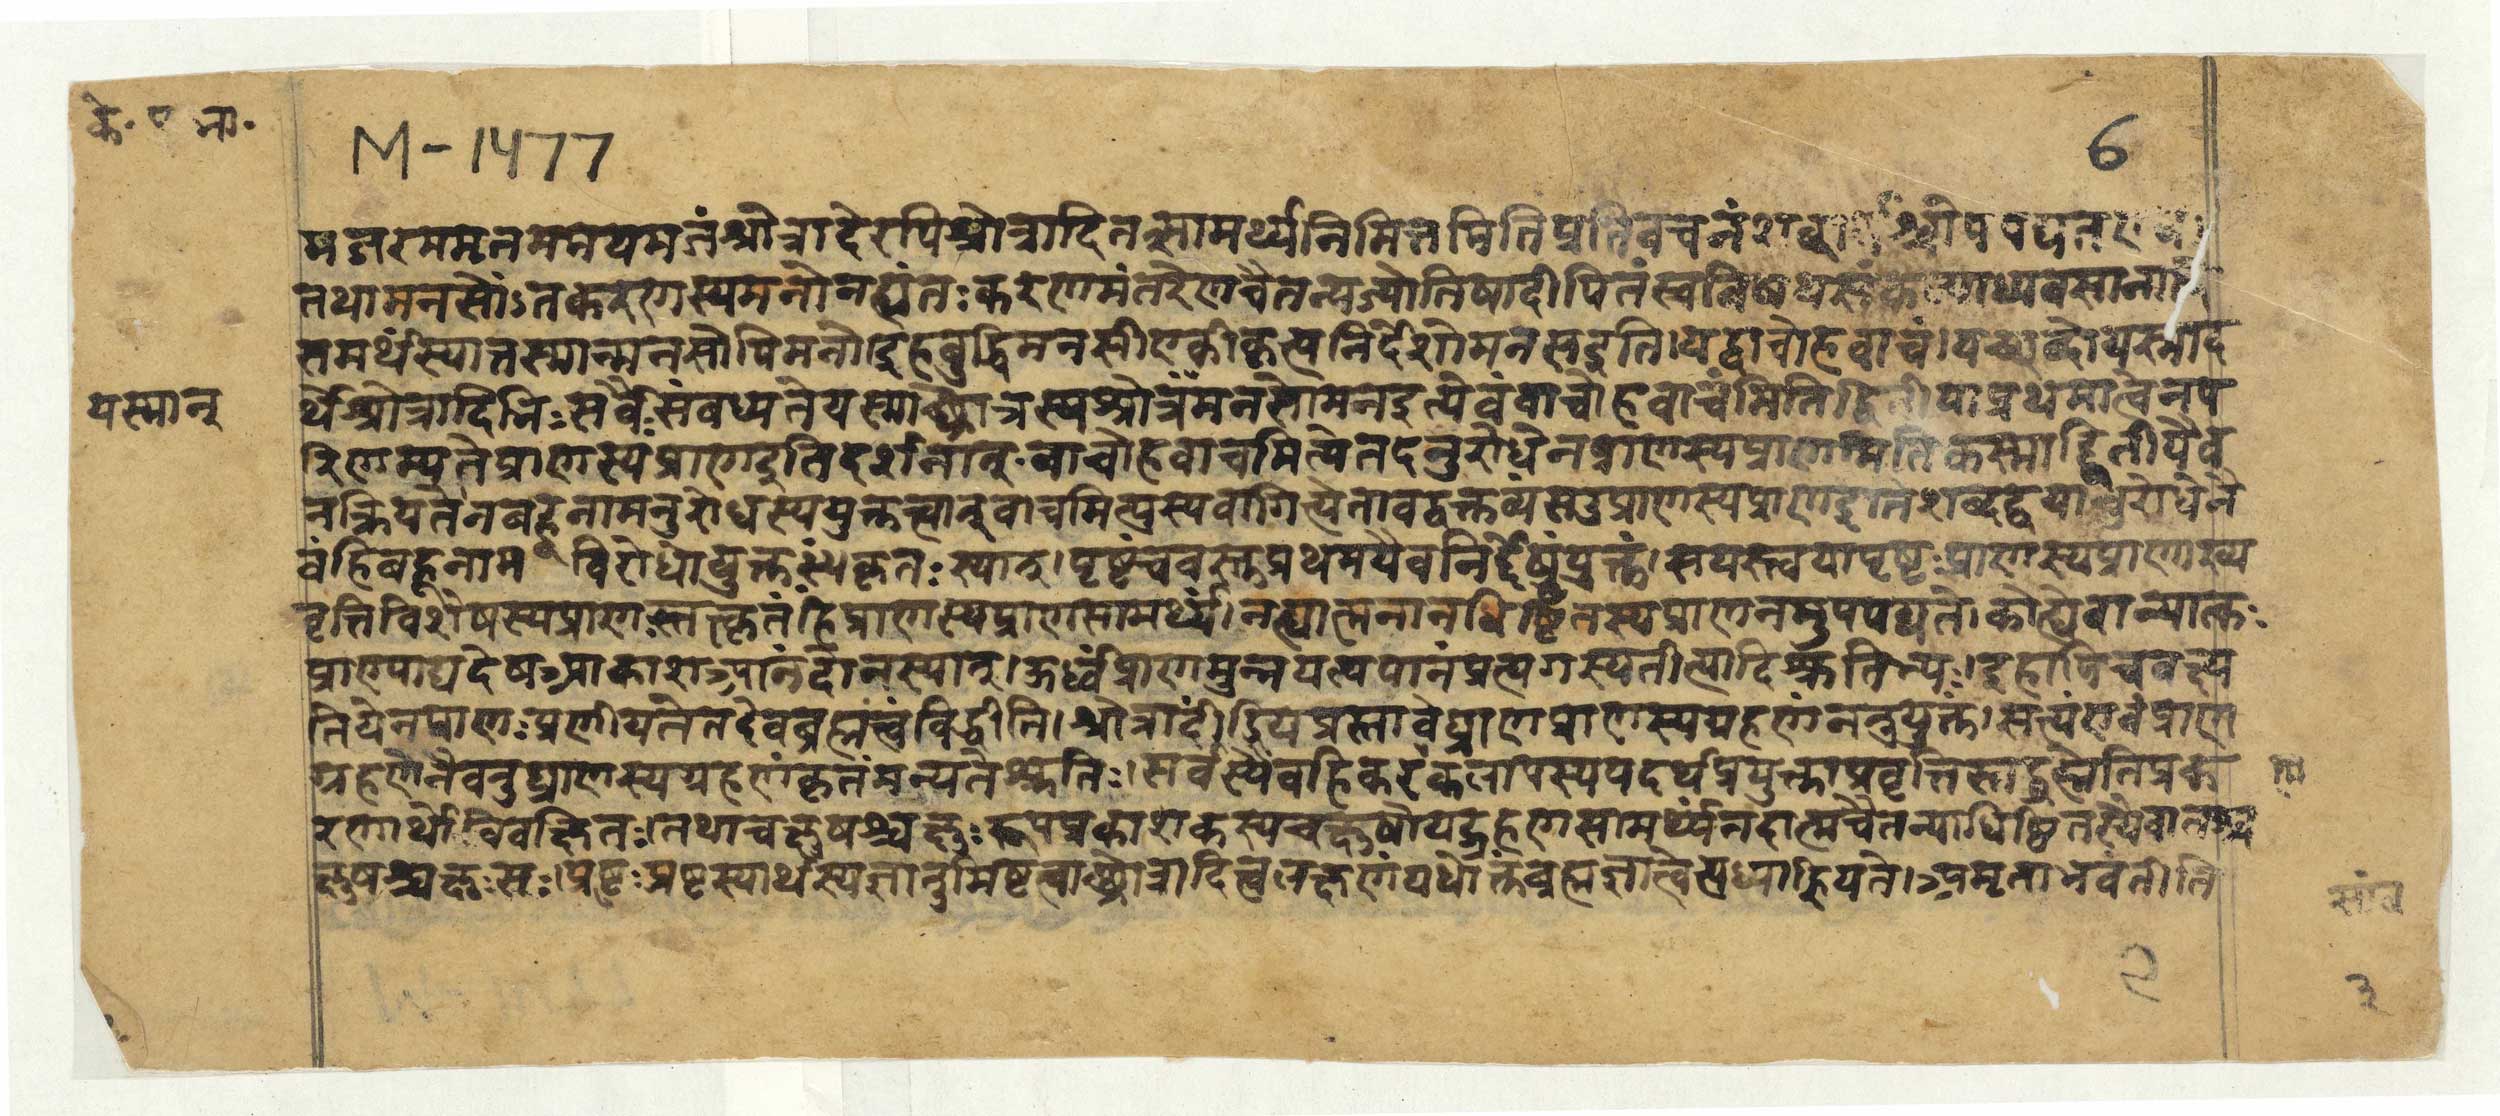 के. प भा.
M-1477
6
मजरममृतमभयमजं श्रोत्रादेरपि श्रोत्रादितत्सामर्थ्यनिमित्तमिति प्रतिवचनं श्चोपपद्यत एव।
तथामनसोंऽतकरणस्यमनोनह्यंतःकरणमंतरेणचैतन्यज्योतिषादीपितंस्वविषयसंकल्पाध्यवसानादि
समर्थंस्यात्तस्मान्मनसोपिमनो।इहबुद्धिमनसीएकीकृत्यनिर्देशोमनसइति।यद्वाचोहवाचं।यच्छब्दोयस्माद
यस्मात्
र्थेश्रोत्रादिभिःसर्वैःसंबध्यतेयस्माच्छ्रोत्रस्यश्रोत्रंमनसोमनइत्येवंवाचोहवाचंमिति।द्वितीयाप्रथमात्वेनप
रिणम्यतेप्राणस्यप्राणइतिदर्शनात्.वाचोहवाचमित्येतदनुरोधेनप्राणस्यप्राणमितिकस्माद्द्वितीयैव
नक्रियतेनबहूनामनुरोधस्ययुक्तत्वात्वाचमित्यस्यवागित्येतावद्वक्तव्यंसउप्राणस्यप्राणइतिशब्दद्वयानुरोधेनै
वंहिबहूनाम विरोधोयुक्तःकृतःस्यात्।पृष्टंचवस्तुप्रथमयैवनिर्देष्टुंयुक्तं।सयस्त्वयापृष्टःप्राणस्यप्राणाख्य
वृत्तिविशेषस्यप्राणस्तत्कृतंहिप्राणस्यप्राणसामर्थ्यं।नह्यात्मनानधिष्ठितस्यप्राणनमुपपद्यते।कोह्येवान्यात्कः
प्राण्याद्यदेषआकाशआनंदोनस्यात्।ऊर्ध्वंप्राणमुन्नयत्यपानंप्रत्यगस्यतीत्यादिश्रुतिभ्यः।इहापिचवक्ष्य
तियेनप्राणःप्रणीयतेतदेवब्रह्मत्वंविद्धीति।श्रोत्रादींद्रियप्रस्तावेघ्राणप्राणस्यग्रहणंनतुयुक्तं।सत्यंएवंप्राण
ग्रहणेनैवतुघ्राणस्यग्रहणंकृतंमन्यतेश्रुतिः।सर्वस्यैवहिकरंकलापस्ययदर्थप्रयुक्ताप्रवृत्तिस्तद्ब्रह्मेतिप्रक
ण
रणार्थोविवक्षितः।तथाचक्षुषश्चक्षुःरूपप्रकाशकस्यचक्षुषोयद्रूपग्रहणसामर्थ्यंतदात्मचैतन्याधिष्ठितस्यैवातश्च
क्षुषश्चक्षुःसः।प्रष्टुःप्रष्टस्यार्थस्यज्ञातुमिष्टत्वाच्छ्रोत्रादित्वलक्षणंयथोक्तंब्रह्मज्ञात्वेत्यध्याह्रियते।अमृताभवंतीति
३